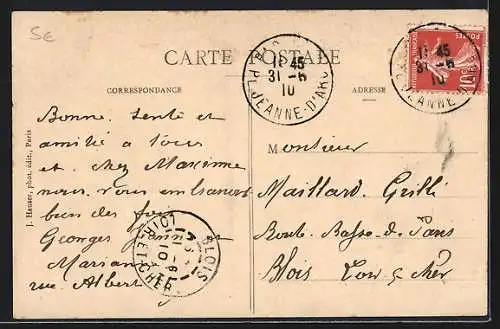 5€
CARTE POSTALE
11 45
31 -5
10
PL. JEANNE-D'ARC
11 45
31 -5
10
JEANNE
POSTES
10
CORRESPONDANCE
ADRESSE
Bonne santé et
amitié a tous
et chez Maxime
nous vous embrassons
bien des fois
Georges
Marian
rue Albert
Monsieur
Maillard. Grilli
Boule. Basse. de Paris
Blois Loir & Cher
BLOIS
LOIR-ET-CHER
J. Hauser, phot. édit., Paris